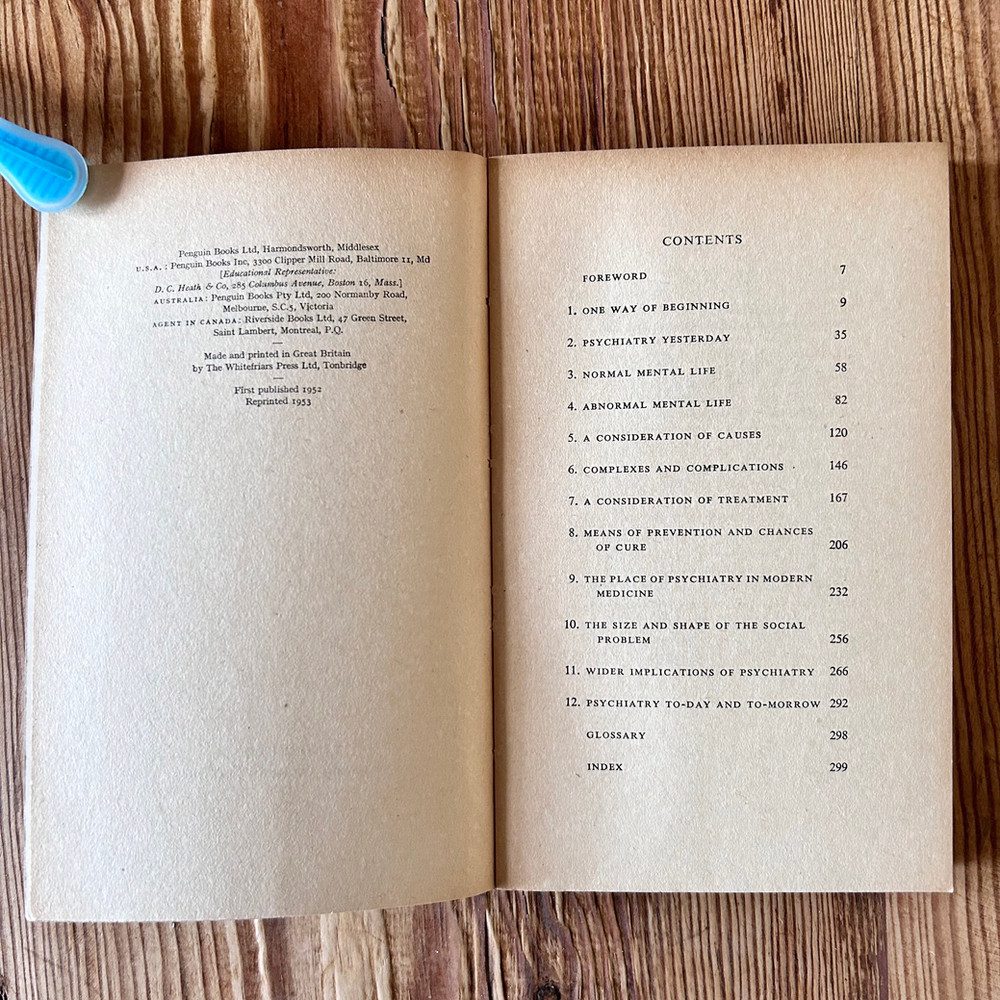 Penguin Books Ltd, Harmondsworth, Middlesex
U.S.A.: Penguin Books Inc, 3300 Clipper Mill Road, Baltimore 11, Md
[Educational Representative:
D. C. Heath & Co, 285 Columbus Avenue, Boston 16, Mass.]
AUSTRALIA: Penguin Books Pty Ltd, 200 Normanby Road,
Melbourne, S.C.5, Victoria
AGENT IN CANADA: Riverside Books Ltd, 47 Green Street,
Saint Lambert, Montreal, P.Q.
—
Made and printed in Great Britain
by The Whitefriars Press Ltd, Tonbridge
—
First published 1952
Reprinted 1953
CONTENTS
FOREWORD 7
1. ONE WAY OF BEGINNING 9
2. PSYCHIATRY YESTERDAY 35
3. NORMAL MENTAL LIFE 58
4. ABNORMAL MENTAL LIFE 82
5. A CONSIDERATION OF CAUSES 120
6. COMPLEXES AND COMPLICATIONS 146
7. A CONSIDERATION OF TREATMENT 167
8. MEANS OF PREVENTION AND CHANCES
OF CURE 206
9. THE PLACE OF PSYCHIATRY IN MODERN
MEDICINE 232
10. THE SIZE AND SHAPE OF THE SOCIAL
PROBLEM 256
11. WIDER IMPLICATIONS OF PSYCHIATRY 266
12. PSYCHIATRY TO-DAY AND TO-MORROW 292
GLOSSARY 298
INDEX 299